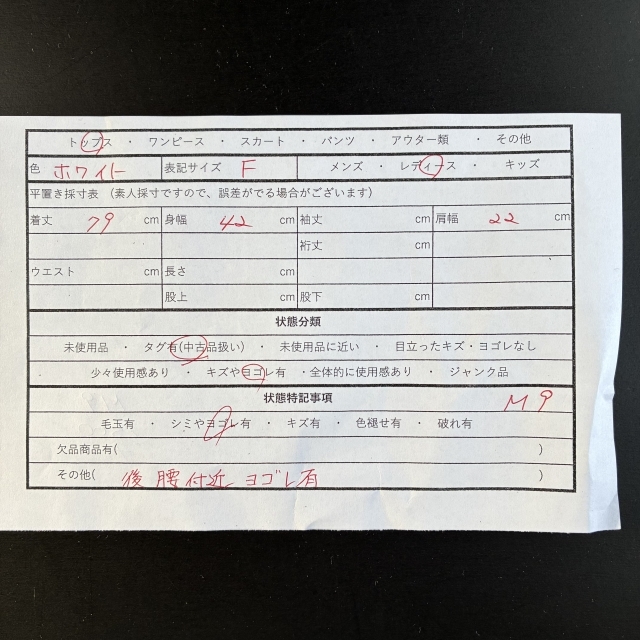 トップス ・ ワンピース ・ スカート ・ パンツ ・ アウター類 ・ その他
色 ホワイト 表記サイズ F メンズ ・ レディース ・ キッズ
平置き採寸表 （素人採寸ですので、誤差がでる場合がございます）
着丈 79 cm 身幅 42 cm 袖丈 cm 肩幅 22 cm
裄丈 cm
ウエスト cm 長さ cm
股上 cm 股下 cm
状態分類
未使用品 ・ タグ有(中古品扱い) ・ 未使用品に近い ・ 目立ったキズ・ヨゴレなし
少々使用感あり ・ キズやヨゴレ有 ・全体的に使用感あり ・ ジャンク品
状態特記事項 M9
毛玉有 ・ シミやヨゴレ有 ・ キズ有 ・ 色褪せ有 ・ 破れ有
欠品商品有( )
その他( 後腰付近ヨゴレ有 )